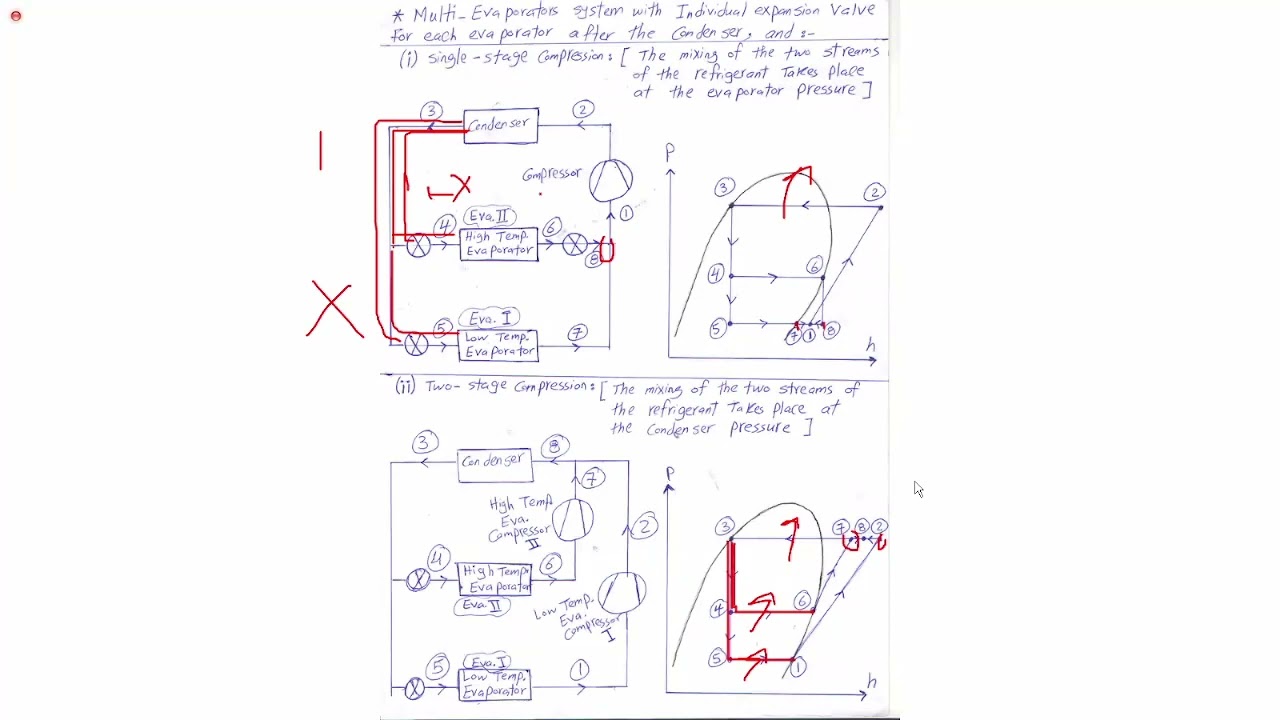 * Multi-Evaporators system with Individual expansion Valve
for each evaporator after the Condenser, and :-
(i) single-stage Compression: [ The mixing of the two streams
of the refrigerant Takes place
at the evaporator pressure ]
3
Condenser
2
Compressor
1
X
Eva. II
4
High Temp.
Evaporator
6
8
Eva. I
5
Low Temp.
Evaporator
7
P
3
2
4
6
5
7
1
8
h
(ii) Two-stage Compression: [ The mixing of the two streams of
the refrigerant Takes place at
the Condenser pressure ]
3
Condenser
8
7
High Temp.
Eva.
Compressor
II
2
4
High Temp.
Evaporator
6
Eva. II
Low Temp.
Eva.
Compressor
I
5
Eva. I
Low Temp.
Evaporator
1
P
3
7
8
2
4
6
5
1
h